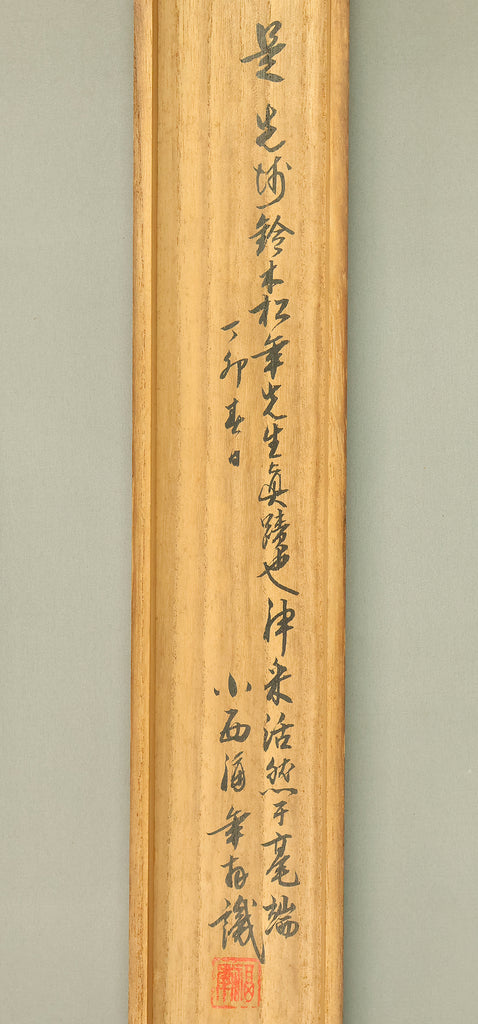 是先師鈴木松年先生眞蹟也神采活然于毫端
丁卯春日
小西福年拝識
福年